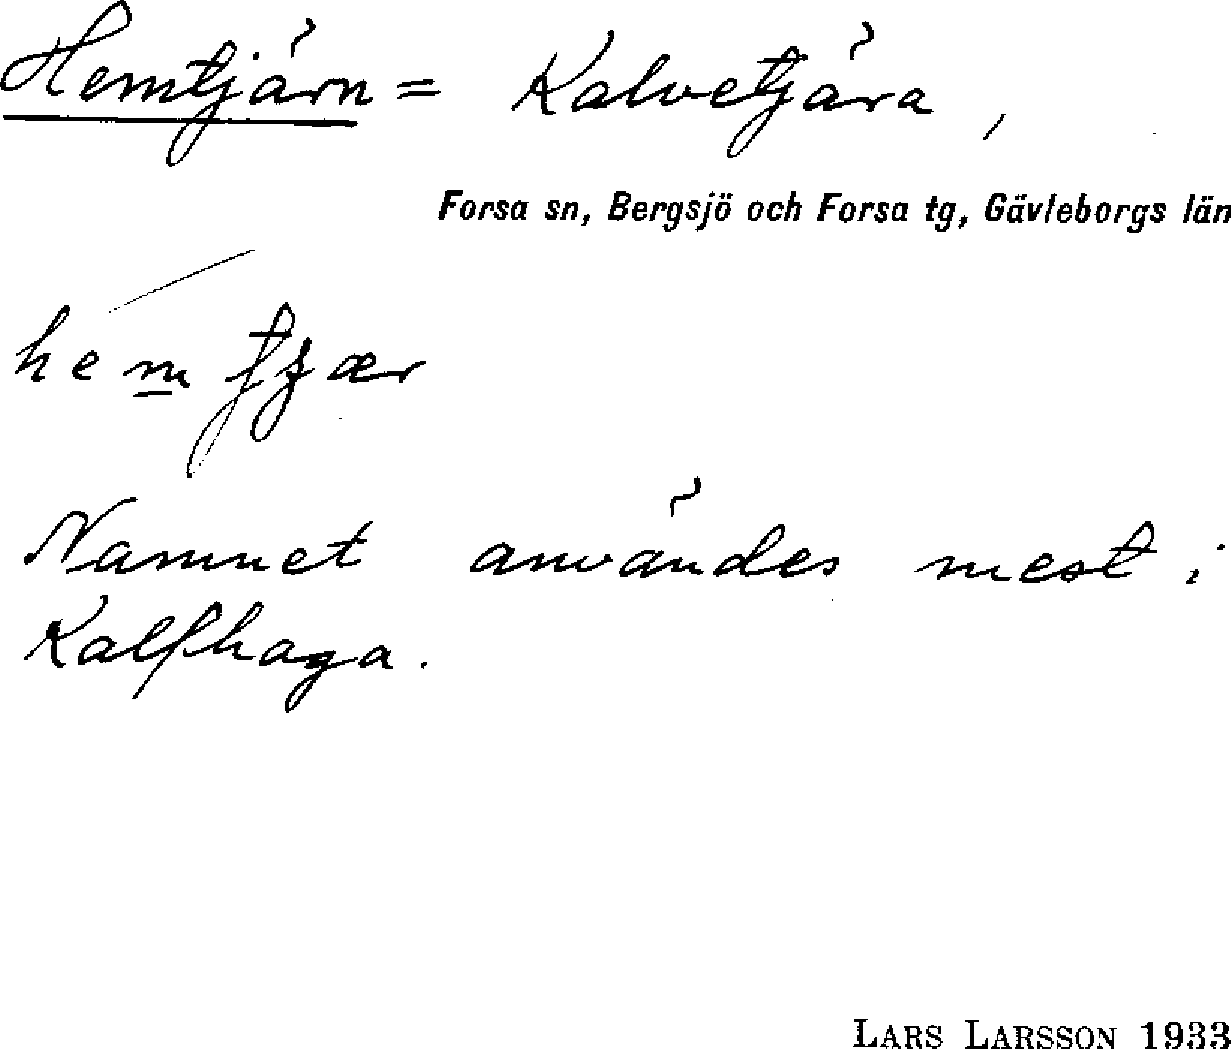 Hemtjärn = Kalvetjära,
Forsa sn, Bergsjö och Forsa tg, Gävleborgs län
Namnet användes mest i
Kalfhaga.
LARS LARSSON 1933